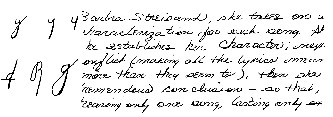 y y y Barbra Streisand, she takes on a
characterization for each song. Sh
he establishes her character, neg
& R g conflict (making all the lyrics mean
more than they seem to), then she
tremendous conclusion — so that,
hearing only one song, lasting only a